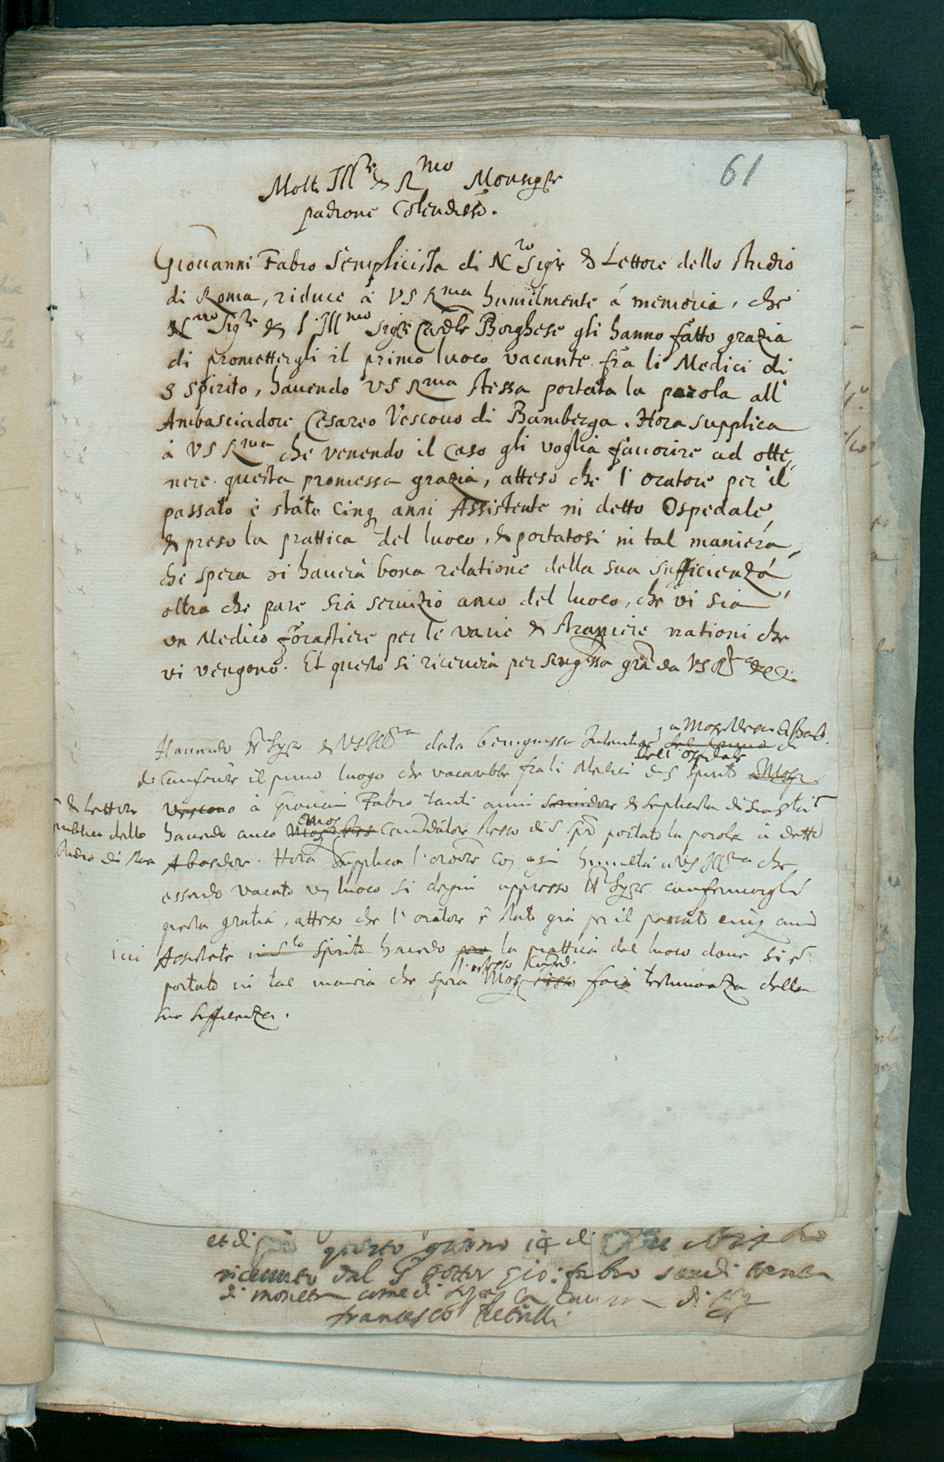 61
Molt Ill.re & R.mo Monsig.re
padrone Colendiss.o.
Giovanni Fabro Semplicista di N.ro Sig.re & Lettore dello studio
di Roma, riduce á VS R.ma humilmente á memoria, che
N.ro Sig.re & l'Ill.mo Sig.re Card.le Borghese gli hanno fatto grazia
di promettergli il primo luoco vacante fra li Medici di
S Spirito, havendo VS R.ma stessa portata la parola all'
Ambasciadore Cesareo Vescovo di Bamberga. Hora supplica
á VS R.ma che venendo il caso gli voglia favorire ad otte,
nere questa promessa grazia, atteso che l'oratore per il
passato è stato cinq anni Assistente in detto Ospedale,
& preso la prattica del luoco, & portatosi in tal maniera,
che spera si haverà bona relatione della sua sufficienza
oltra che pare sia servizio anco del luoco, che vi sia
un Medico forastiere per le varie & straniere nationi che
vi vengono. Et questo si riceverà per sing.ma gra da VS R.ma
Havendo N.ro Sig.re & VS Ill.ma data benignissa
dell'ospitale
di conferire il primo luogo che vacarebbe fra li Medici di S Spirito
& lettore Vescovo à Giovanni Fabro tanti anni semplicista di
publico dello havendo anco Mons. Comendatore stesso di S Sp.o portato la parola à detto
studio di Roma Abasdore. Hora supplica l'oratre con ogni humiltà à VS Ill.ma che
essendo vacato un luoco si degni appresso N.ro Sig.re confermargli
questa gratia, atteso che l'oratore è stato già per il passato cinq anni
ivi Assistente in S.to Spirito havendo pre la prattica del luoco dove si è
l'istesso
portato in tal maniera che spera Mons. farà testimonanza della
sua sufficienza.
et di questo giorno 14 di
ricevuto dal S Dottor Gio: fabro scudi
di moneta come di
francesco